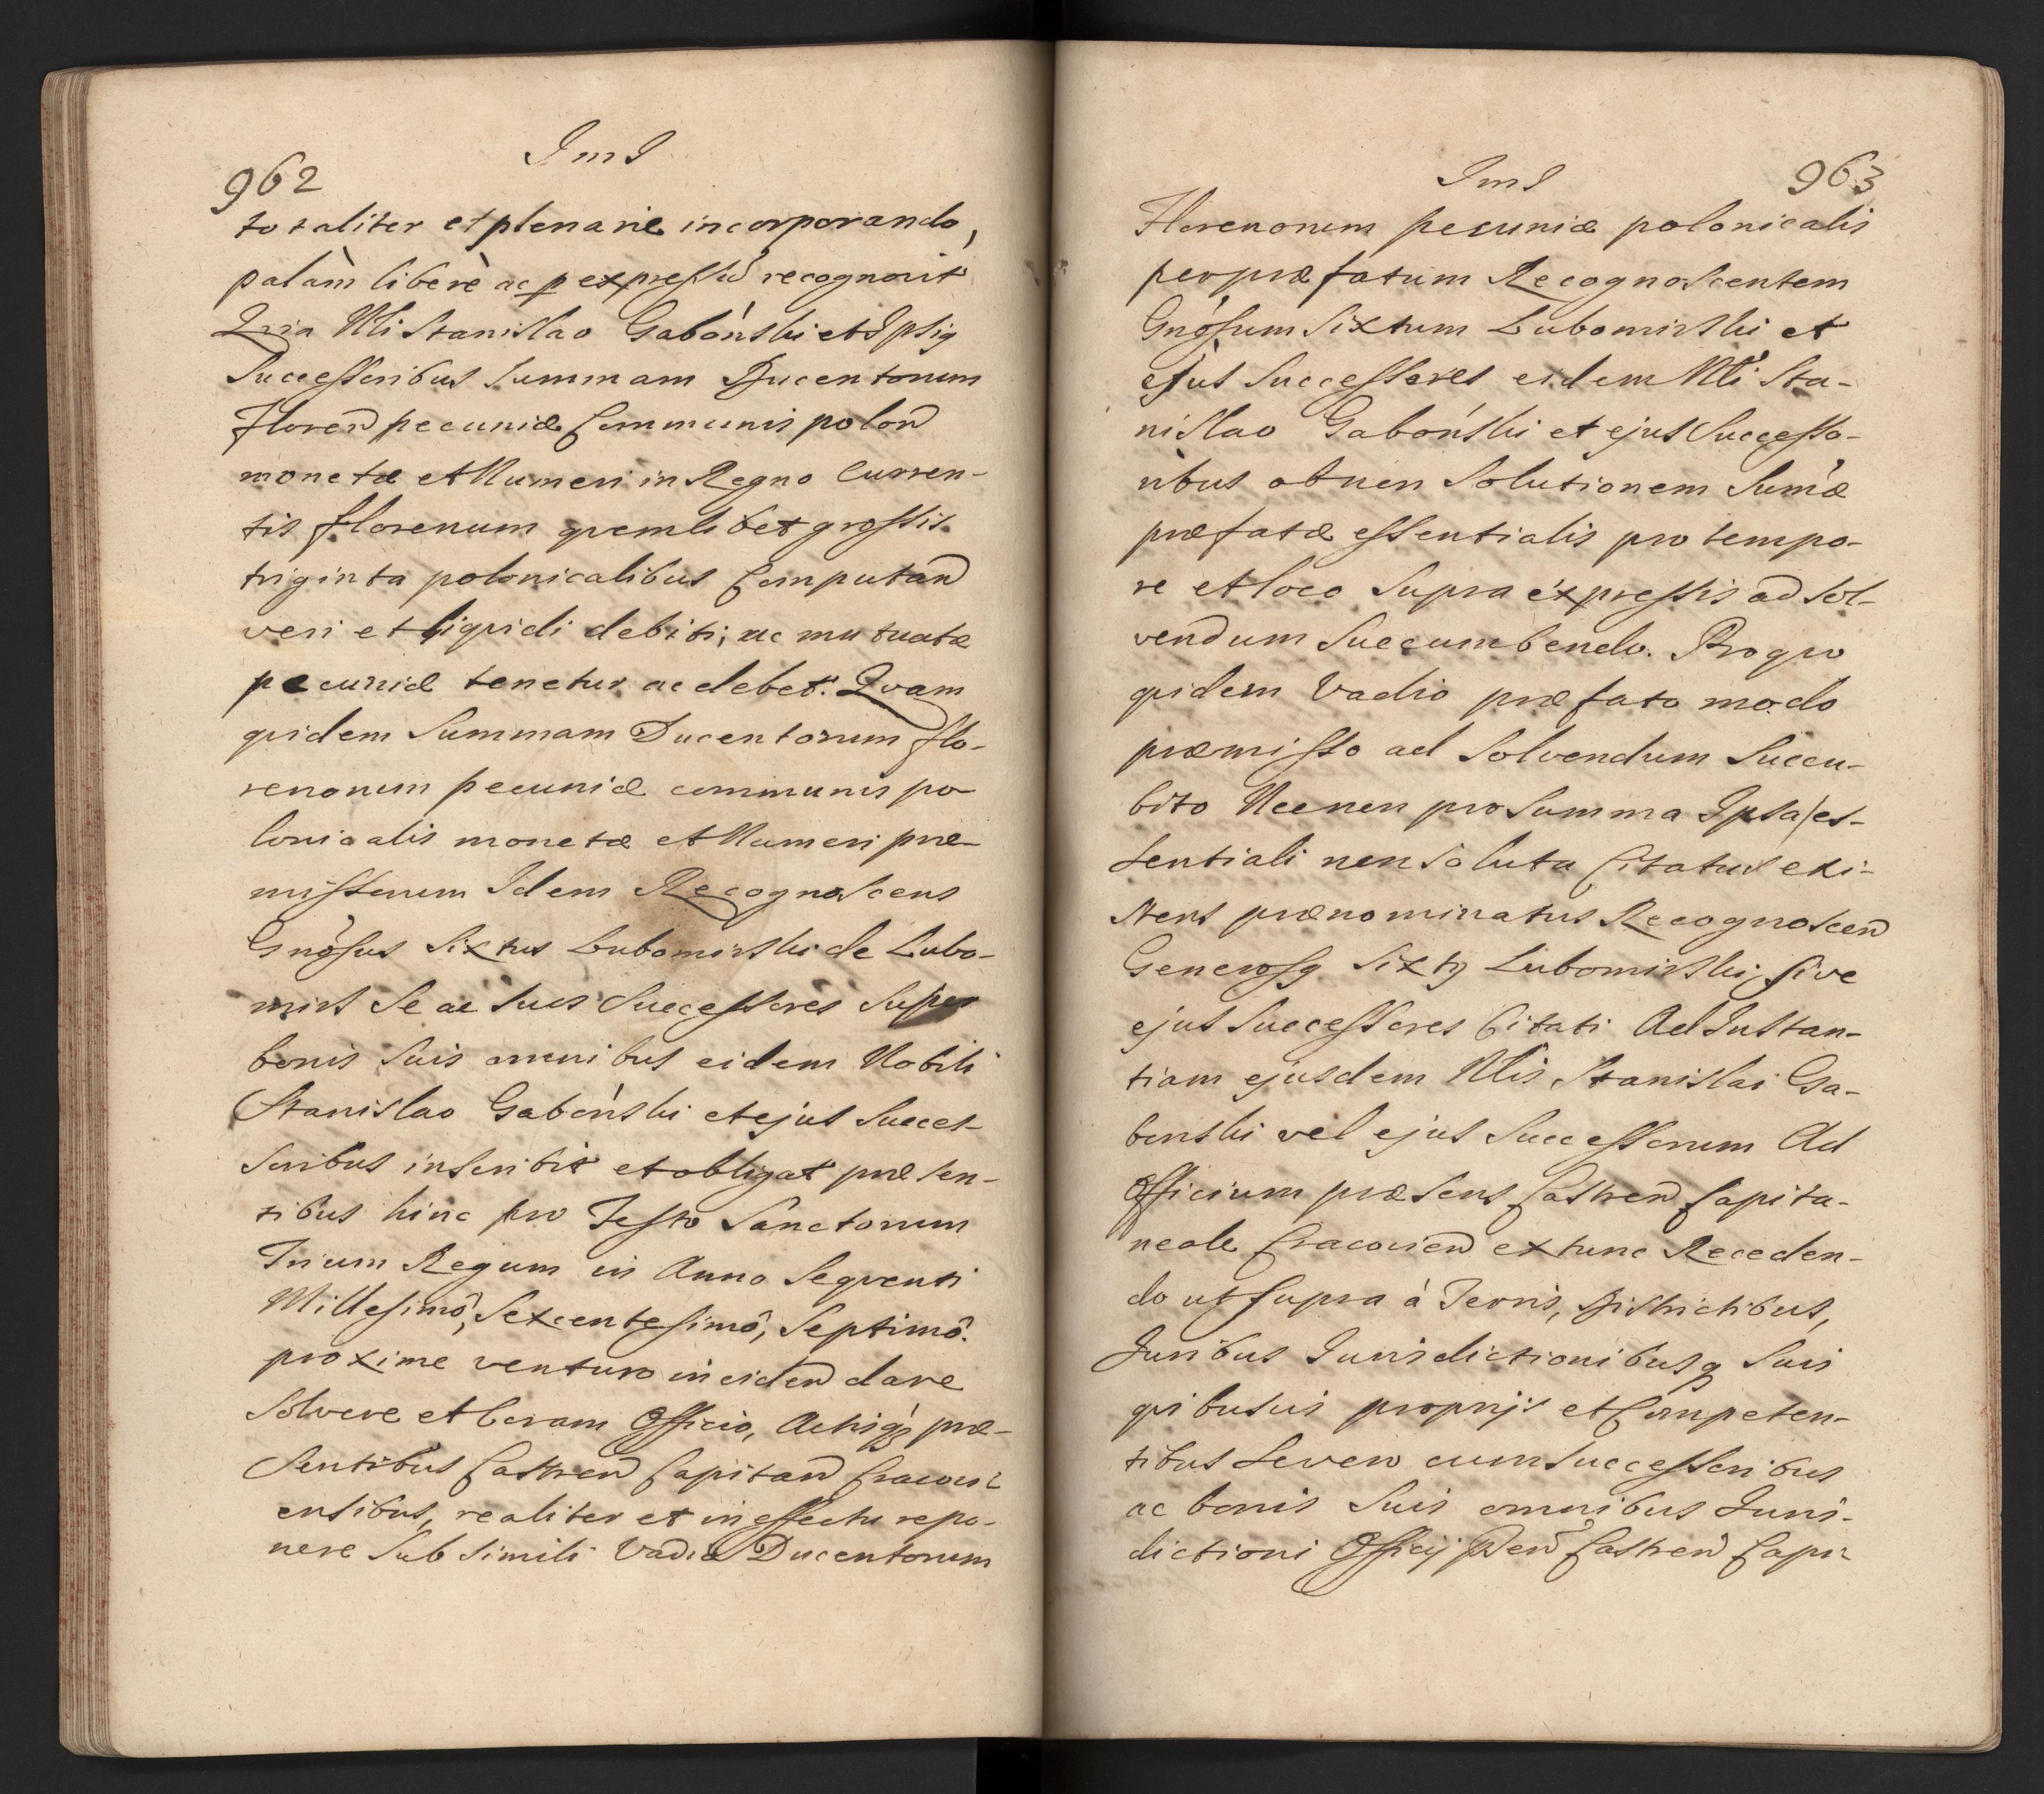 962
ImI
totaliter et plenarie incorporando,
palàm liberè ac p expressũ recognovit
Quia Nli Stanislao Gaboński et Ipsiq
Successoribus Summam Ducentorum
Floren̄ pecuniæ Communis polon̄
monetæ et Numeri in Regno Curren-
tis florenum quemlibet grossis
triginta polonicalibus Computan̄
veri et liquidi debiti, ac mutuatæ
pecuniæ tenetur ac debet. Quam
quidem Summam Ducentorum flo-
renorum pecuniæ communis po
lonicalis monetæ et Numeri præ-
missorum Idem Recognoscens
Gnõsus Sixtus Lubomirski de Lubo-
mirs Se ac Suos Successores Super
bonis Suis omnibus eidem Nobili
Stanislao Gaboński et ejus Succes-
soribus inscribit et obligat præsen-
tibus hinc pro Festo Sanctorum
Trium Regum in Anno Sequenti
Millesimô, Sexcentesimô, Septimô.
proxime venturo in eiden̄ dare
Solvere et Coram Officio, Actisq3 præ-
Sentibus Castren̄ Capitan̄ Cracovi-
ensibus, realiter et in effectu repo-
nere Sub Simili Vadio Ducentorum
ImI
963
Florenorum pecuniæ polonicalis
per præfatum Recognoscentem
Gnõsum Sixtum Lubomirski et
ejus Successores eidem Nli Sta-
nislao Gaboński et ejus Successo-
ribus ob non Solutionem Sum̃æ
præfatæ essentialis pro tempo-
re et loco Supra expressis ad Sol-
vendum Succumbendo. Pro quo
quidem Vadio præfato modo
præmisso ad Solvendum Succu-
bito Necnon pro Summa Ipsa es-
sentiali non Soluta Citatus exi-
stens prænominatus Recognoscen̄
Generosq Sixtq Lubomirski, sive
ejus Successores Citati Ad Instan-
tiam ejusdem Nlis Stanislai Ga-
bonski vel ejus Successorum Ad
Officium præsens Castren̄ Capita-
neale Cracovien̄ ex tunc Receden-
do ut supra à Terris, Districtibus,
Juribus Jurisdictionibusq Suis
quibusvis proprijs et Competen-
tibus Severo cum Successoribus
ac bonis Suis omnibus Juris-
dictioni Officij Pn̄ Castren̄ Capi-